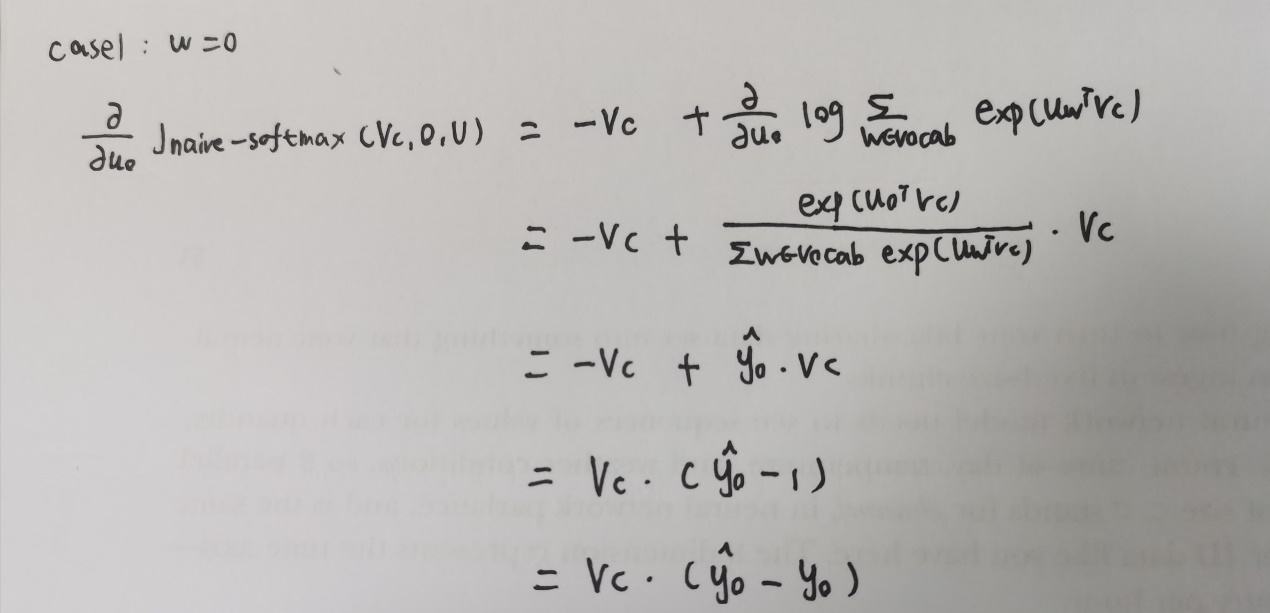 case1 : w=0
∂/∂u₀ J naive-softmax (Vc, O, U) = -Vc + ∂/∂u₀ log Σ w∈vocab exp(uwᵀVc)
= -Vc + exp(u₀ᵀVc) / Σw∈vocab exp(uwᵀVc) · Vc
= -Vc + ŷ₀ · Vc
= Vc · (ŷ₀ - 1)
= Vc · (ŷ₀ - y₀)